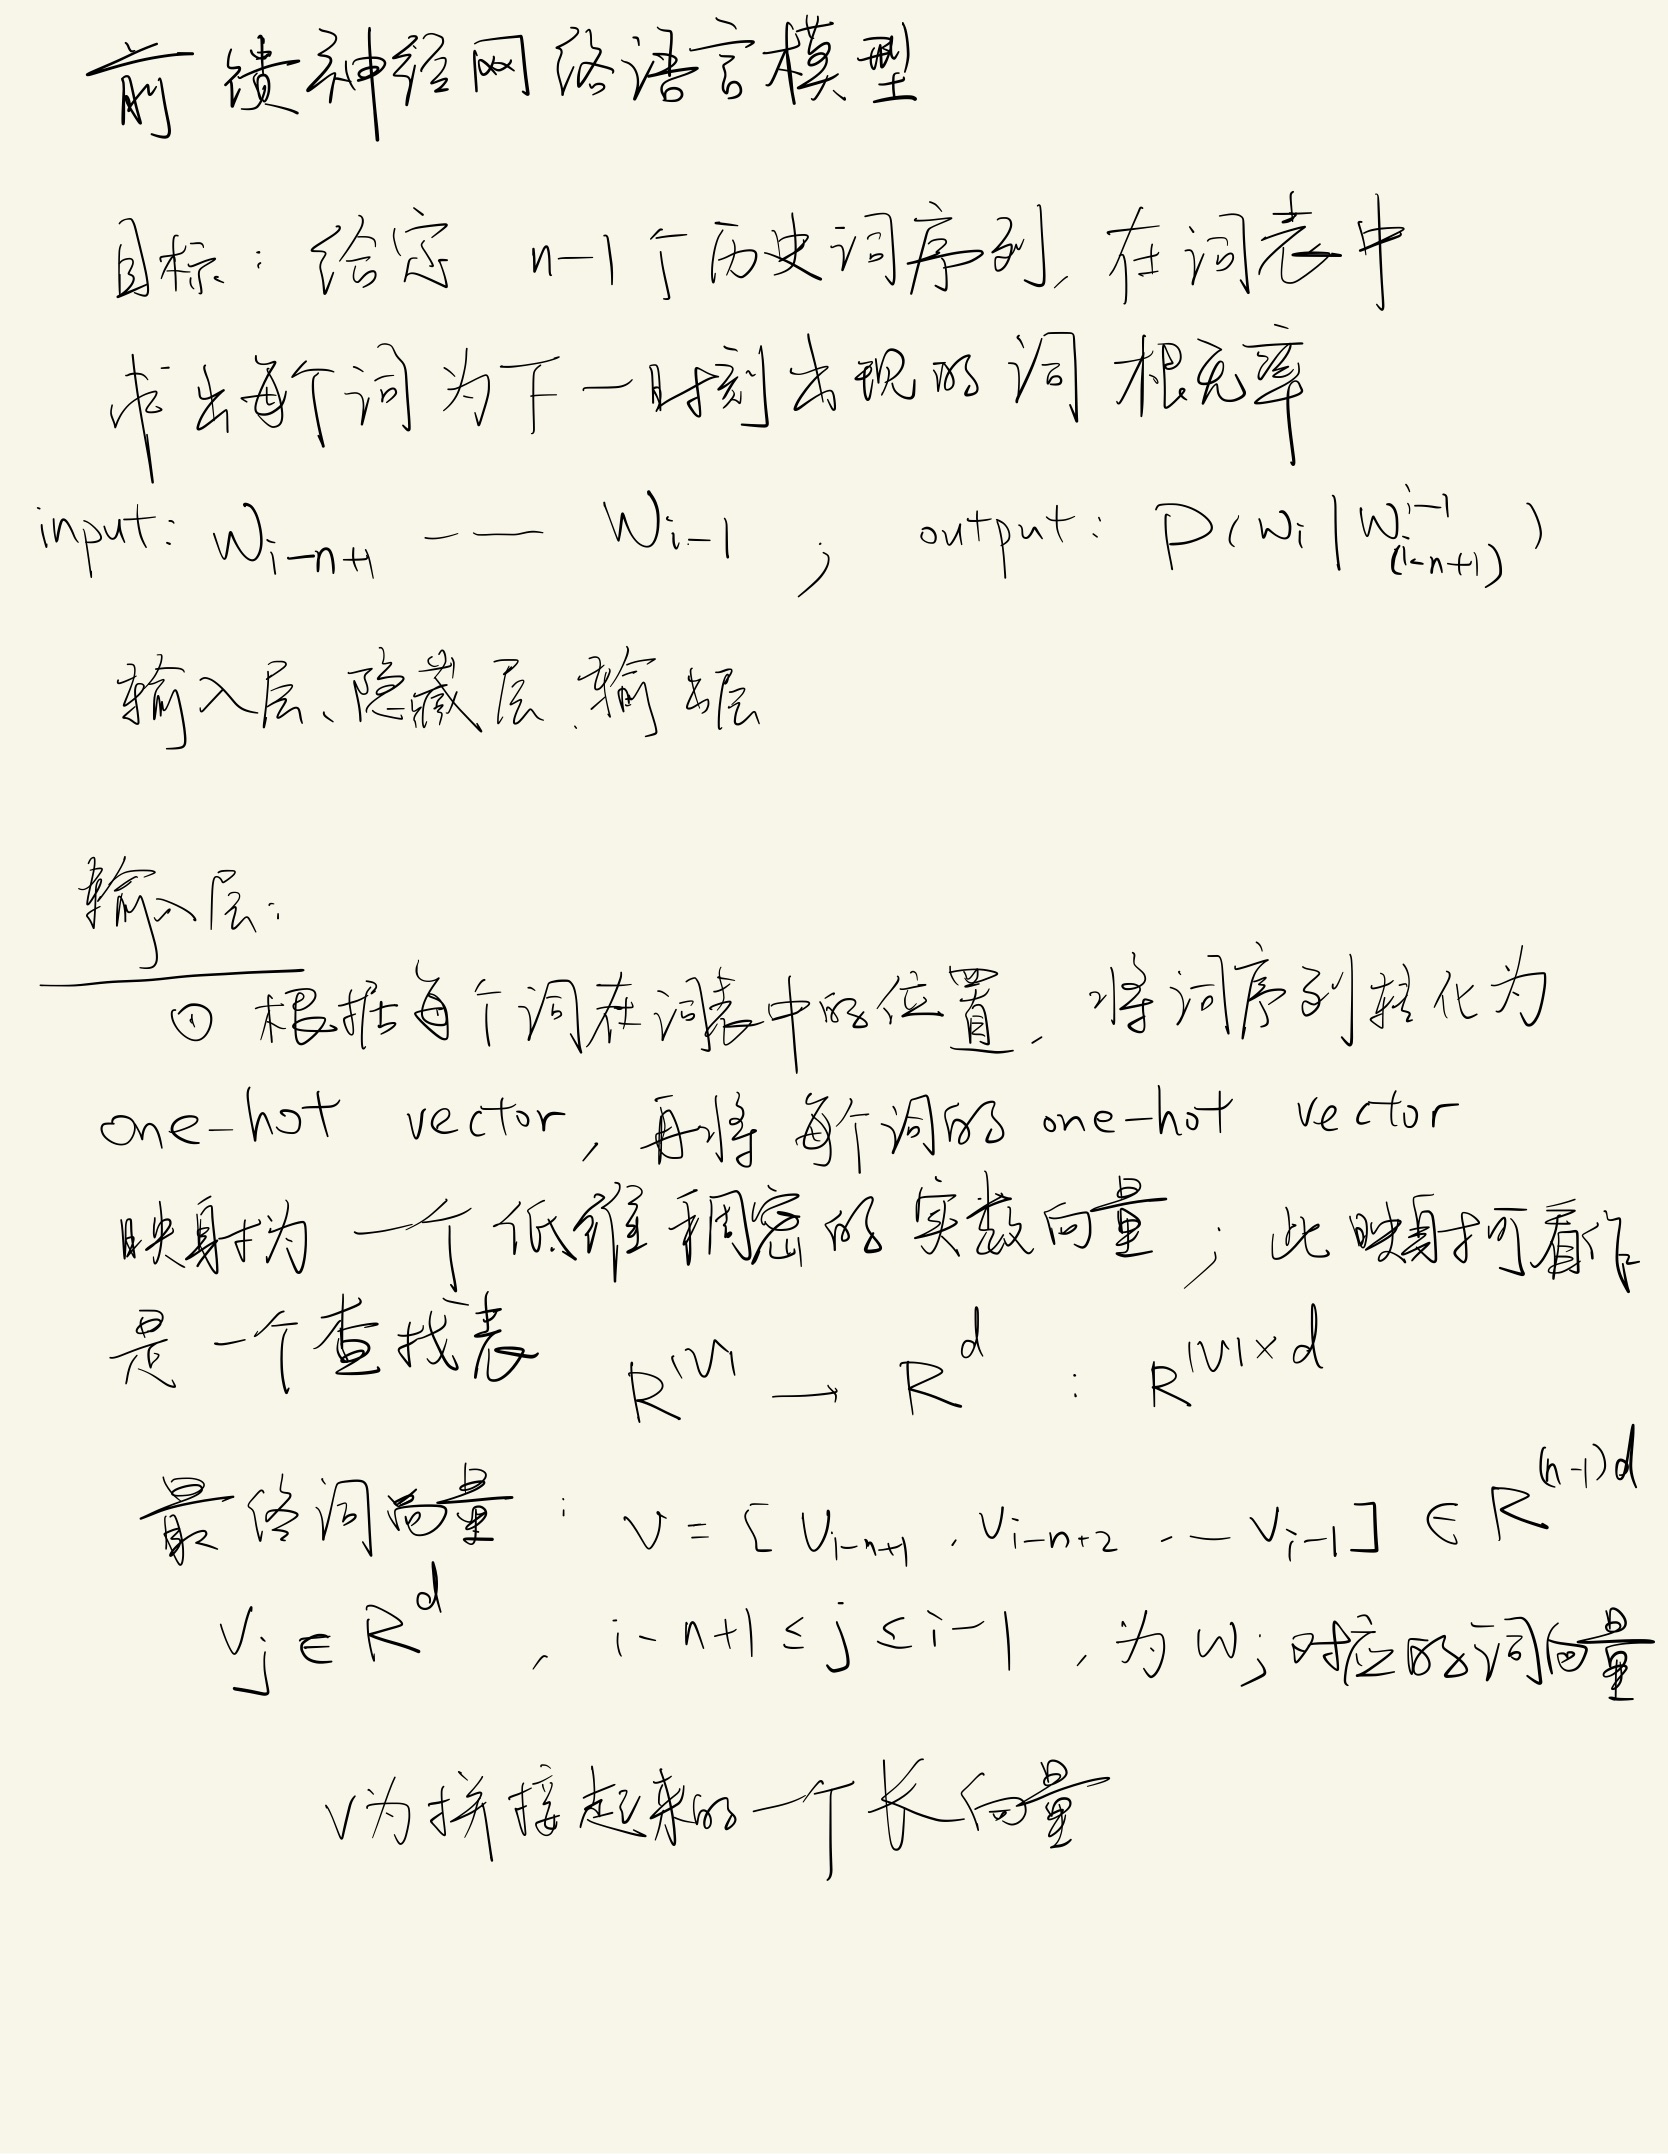 前馈神经网络语言模型
目标：给定 n-1个历史词序列，在词表中
求出每个词为下一时刻出现的词 概率
input: w_{i-n+1} —— w_{i-1} ; output: P(w_i | w_{(i-n+1)}^{i-1})
输入层、隐藏层、输出层
输入层：
① 根据每个词在词表中的位置，将词序列转化为
one-hot vector，再将每个词的 one-hot vector
映射为一个低维稠密的实数向量；此映射可看作
是一个查找表 R^{|V|} → R^d : R^{|V|×d}
最终词向量：v = [v_{i-n+1}, v_{i-n+2}, … v_{i-1}] ∈ R^{(n-1)d}
v_j ∈ R^d, i-n+1 ≤ j ≤ i-1, 为 w_j 对应的词向量
v为拼接起来的一个长向量